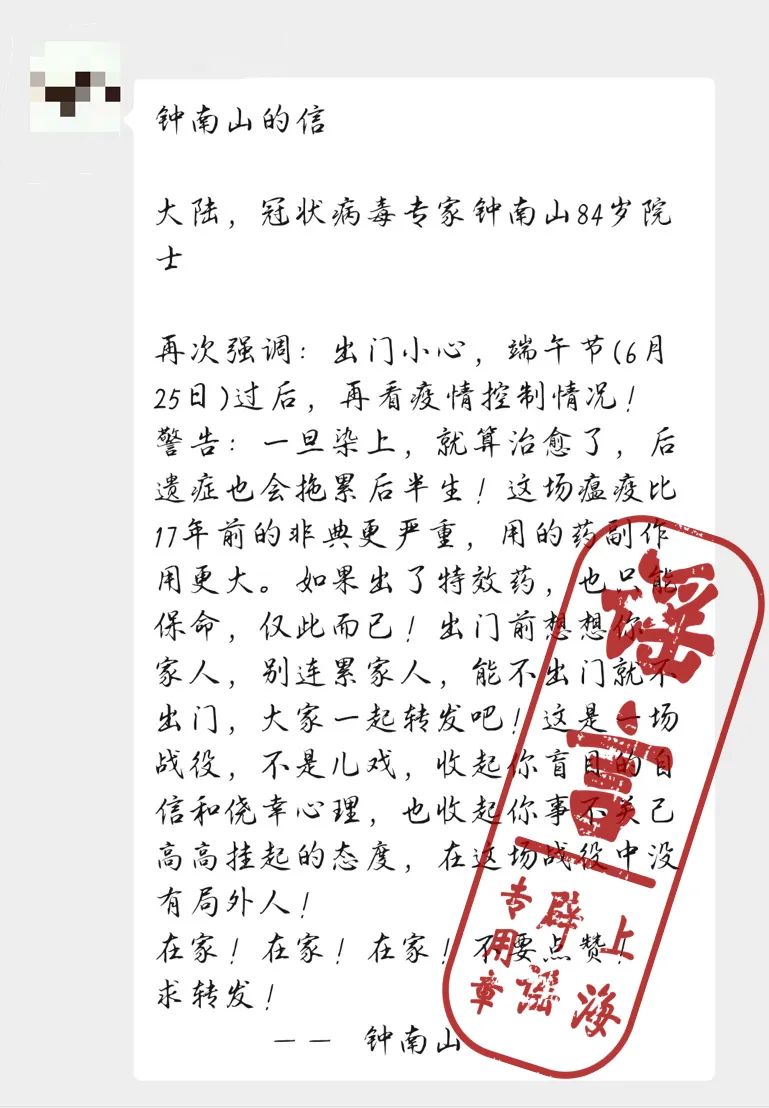 钟南山的信
大陆，冠状病毒专家钟南山84岁院
士
再次强调：出门小心，端午节(6月
25日)过后，再看疫情控制情况！
警告：一旦染上，就算治愈了，后
遗症也会拖累后半生！这场瘟疫比
17年前的非典更严重，用的药副作
用更大。如果出了特效药，也只能
保命，仅此而已！出门前想想你
家人，别连累家人，能不出门就不
出门，大家一起转发吧！这是一场
战役，不是儿戏，收起你盲目的自
信和侥幸心理，也收起你事不关己
高高挂起的态度，在这场战役中没
有局外人！
在家！在家！在家！不要点赞！
求转发！
—— 钟南山
谣言
上海
辟谣
专用章